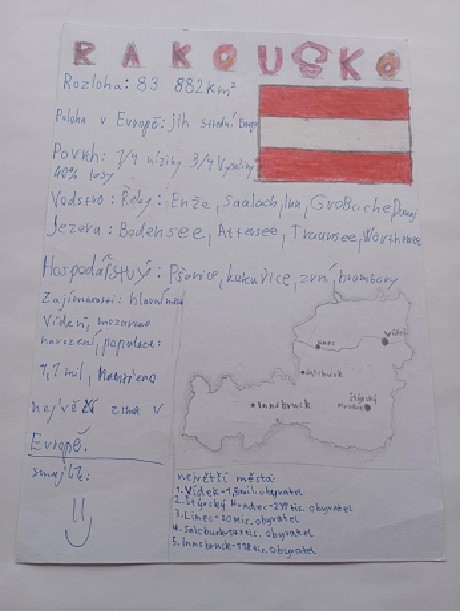 RAKOUSKO
Rozloha: 83 882km²
Poloha v Evropě: jih střední Evropy
Povrh: 1/4 nížiny 3/4 Vysočiny
40% lesy
Vodstvo: Řeky: Enže, Saalach, Inn, Großache, Dunaj
Jezera: Bodensee, Attersee, Traunsee, Wörthersee
Hospodářství: Pšenice, kukuřice, zrní, brambory
Zajímavosti: hlavní město
Vídeň, mozartovo
narození, populace:
největší zima v
Evropě.
smajlík:
Linec
Vídeň
Salcburk
Innsbruck
Štýrský
Hradec
největší města:
1. Vídeň - 1,8 mil. obyvatel
2. Štýrský Hradec - 237 tis. obyvatel
3. Linec - obyvatel
4. Salcburk - tis. obyvatel
5. Innsbruck - 118 tis. obyvatel